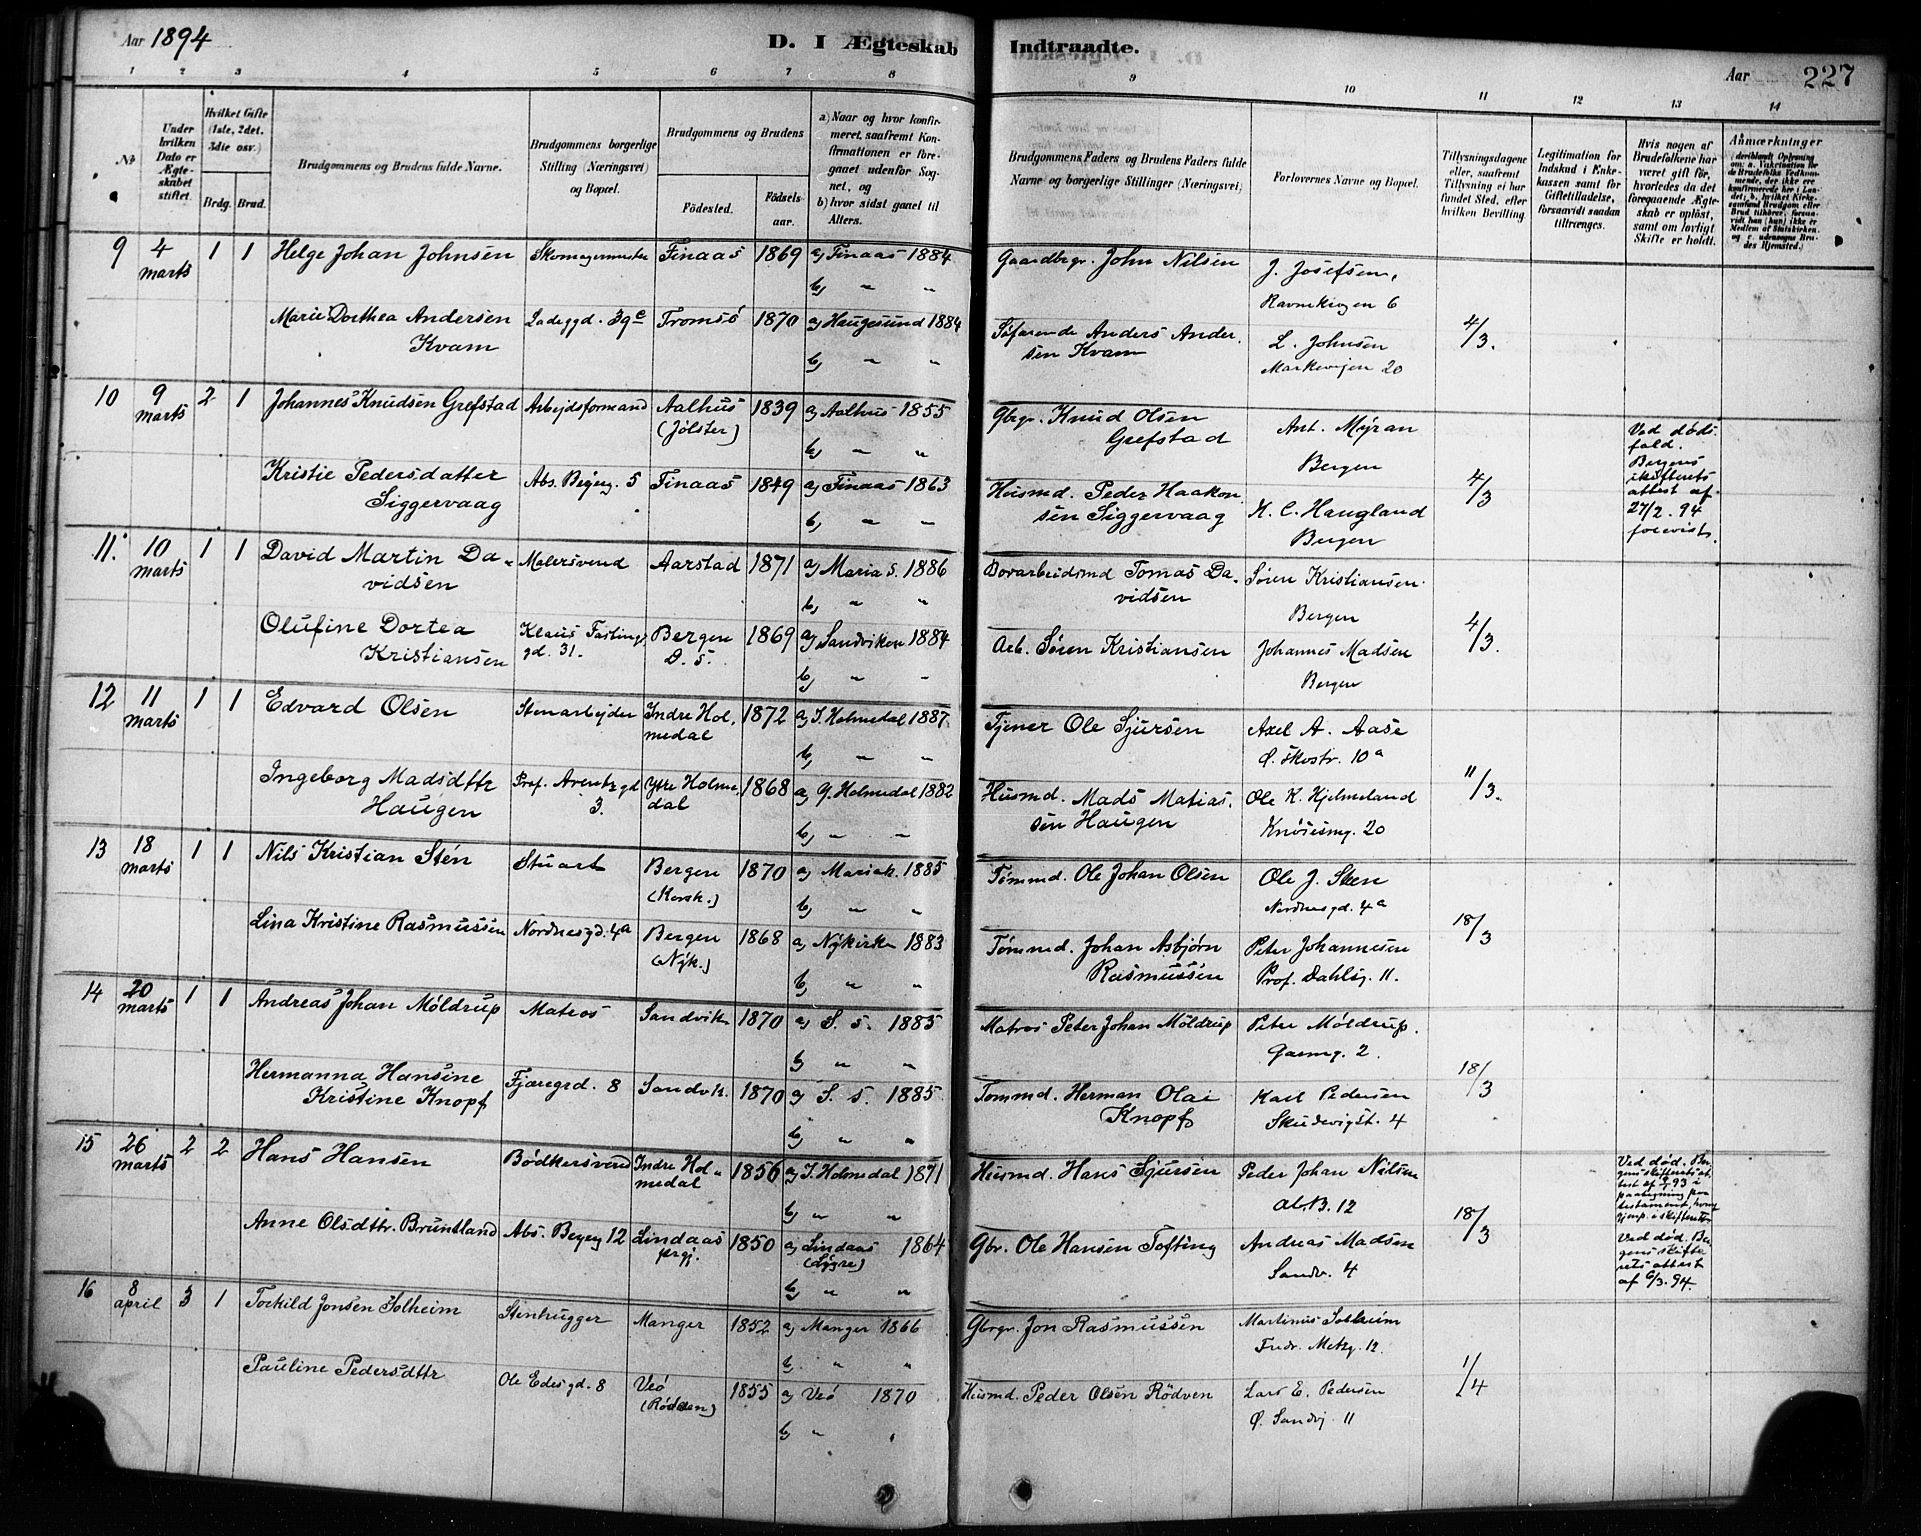 Aar 1894
D. I Ægteskab Indtraadte.
Aar 227
1 2 3 4 5 6 7 8 9 10 11 12 13 14
No
Under hvilken Dato er Ægteskabet stiftet.
Hvilket Gifte (1ste, 2det, 3die osv.)
Brdg. Brud.
Brudgommens og Brudens fulde Navne.
Brudgommens borgerlige Stilling (Næringsvei) og Bopæl.
Brudgommens og Brudens
Fødested. Fødselsaar.
a) Naar og hvor konfirmeret, saafremt Konfirmationen er foregaaet udenfor Sognet, og
b) hvor sidst gaaet til Alters.
Brudgommens Faders og Brudens Faders fulde Navne og borgerlige Stillinger (Næringsvei)
Forlovernes Navne og Bopæl.
Tillysningsdagene eller, saafremt Tillysning ei har fundet Sted, efter hvilken Bevilling.
Legitimation for Indskud i Enkekassen samt for Giftetilladelse, forsaavidt saadan tiltrænges.
Hvis nogen af Brudefolkene har været gift før, hvorledes da det foregaaende Ægteskab er opløst, samt om lovligt Skifte er holdt.
Anmærkninger
9 4 marts 1 1 Helge Johan Johnsen Skomagermester Finaas 1869 a) Finaas 1884 Gaardbrgr. John Nilsen J. Josefsen,
b) " " 6
Marie Dorthea Andersen Ladeggd. 39c Tromsö 1870 a) Haugesund 1884 Söfarende Anders Ander- L. Johnsen 4/3.
Kvam b) " " sen Kvam Markevejen 20
10 9 marts 2 1 Johannes Knudsen Grefstad Arbejdsformand Aalhus 1839 a) Aalhus 1855 Gbrgr. Knud Olsen Ant. Myran Ved döds-
(Jölster) b) " " Grefstad Bergen fald.
Kristie Pedersdatter Abs. Beyerg. 5 Finaas 1849 a) Finaas 1863 Husmd. Peder Haakon K. C. Haugland 4/3 Bergens skifterets attest af
Siggervaag b) " " sen Siggervaag Bergen 27/2. 94 forevist.
11. 10 marts 1 1 David Martin Da- Malersvend Aarstad 1871 a) Maria S. 1886 Tomas Da- Sören Kristiansen
vidsen b) " " vidsen Bergen
Olufine Dortea Klaus Fasting Bergen 1869 a) Sandviken 1884 Arb. Sören Kristiansen Johannes Madsen 4/3.
Kristiansen gd. 31. D. S. b) " " Bergen
12 11 marts 1 1 Edvard Olsen Stenarbejder Indre Hol- 1872 a) I. Holmedal 1887 Tjener Ole Sjursen Axel A. Aase
medal b) " " Ø. Skostr. 10a
Ingeborg Madsdttr Prof. Arentz gd Ytre Holme- 1868 a) Y. Holmedal 1882 Husmd. Mads Matias- Ole K. Hjelmeland 11/3.
Haugen 3. dal b) " " sen Haugen Knösesmg. 20
13 18 marts 1 1 Nils Kristian Stén Stuart Bergen 1870 a) Mariak. 1885 Tömmd. Ole Johan Olsen Ole J. Steen
(Korsk.) b) " " Nordnesgd. 4a
Lina Kristine Rasmussen Nordnesgd. 4a Bergen 1868 a) Nykirke 1883 Tömmd. Johan Asbjörn Peter Johannesen 18/3
(Nyk.) b) " " Rasmussen Prof. Dahlsg. 11.
14 20 marts 1 1 Andreas Johan Möldrup Matros Sandvik. 1870 a) S. S. 1885 Matros Peter Johan Möldrup Peter Möldrup.
b) " " 2.
Hermanna Hansine Fjæregrd. 8 Sandvk. 1870 a) S. S. 1885 Tömmd. Herman Olai Karl Pedersen 18/3
Kristine Knopf b) " " Knopf Skudevigst. 4
15 26 marts 2 2 Hans Hansen Bödkersvend Indre Hol- 1856 a) I. Holmedal 1871 Husmd. Hans Sjursen Peder Johan Nilsen
medal b) " " Ab. B. 12
Anne Olsdttr. Bruntland Abs. Beyerg 12 Lindaas 1850 a) Lindaas 1864 Gbr. Ole Hansen Tofting Andreas Madsen 18/3 Ved död. Ber
prgj. (Lygre) Sandv. 4 gens skifte
b) " " rets attest af 6/3. 94.
16 8 april 3 1 Torkild Jonsen Solheim Stenhugger Manger 1852 a) Manger 1866 Gbrgr. Jon Rasmussen Martinus Solheim
b) " " Fredr. Meltzg. 12.
Pauline Pedersdttr Ole Edesgd. 8 Veö 1855 a) Veö 1870 Husmd. Peder Olsen Rödven Lars E. Pedersen 1/4
(Rödven) b) " Ø. Sandvj 11